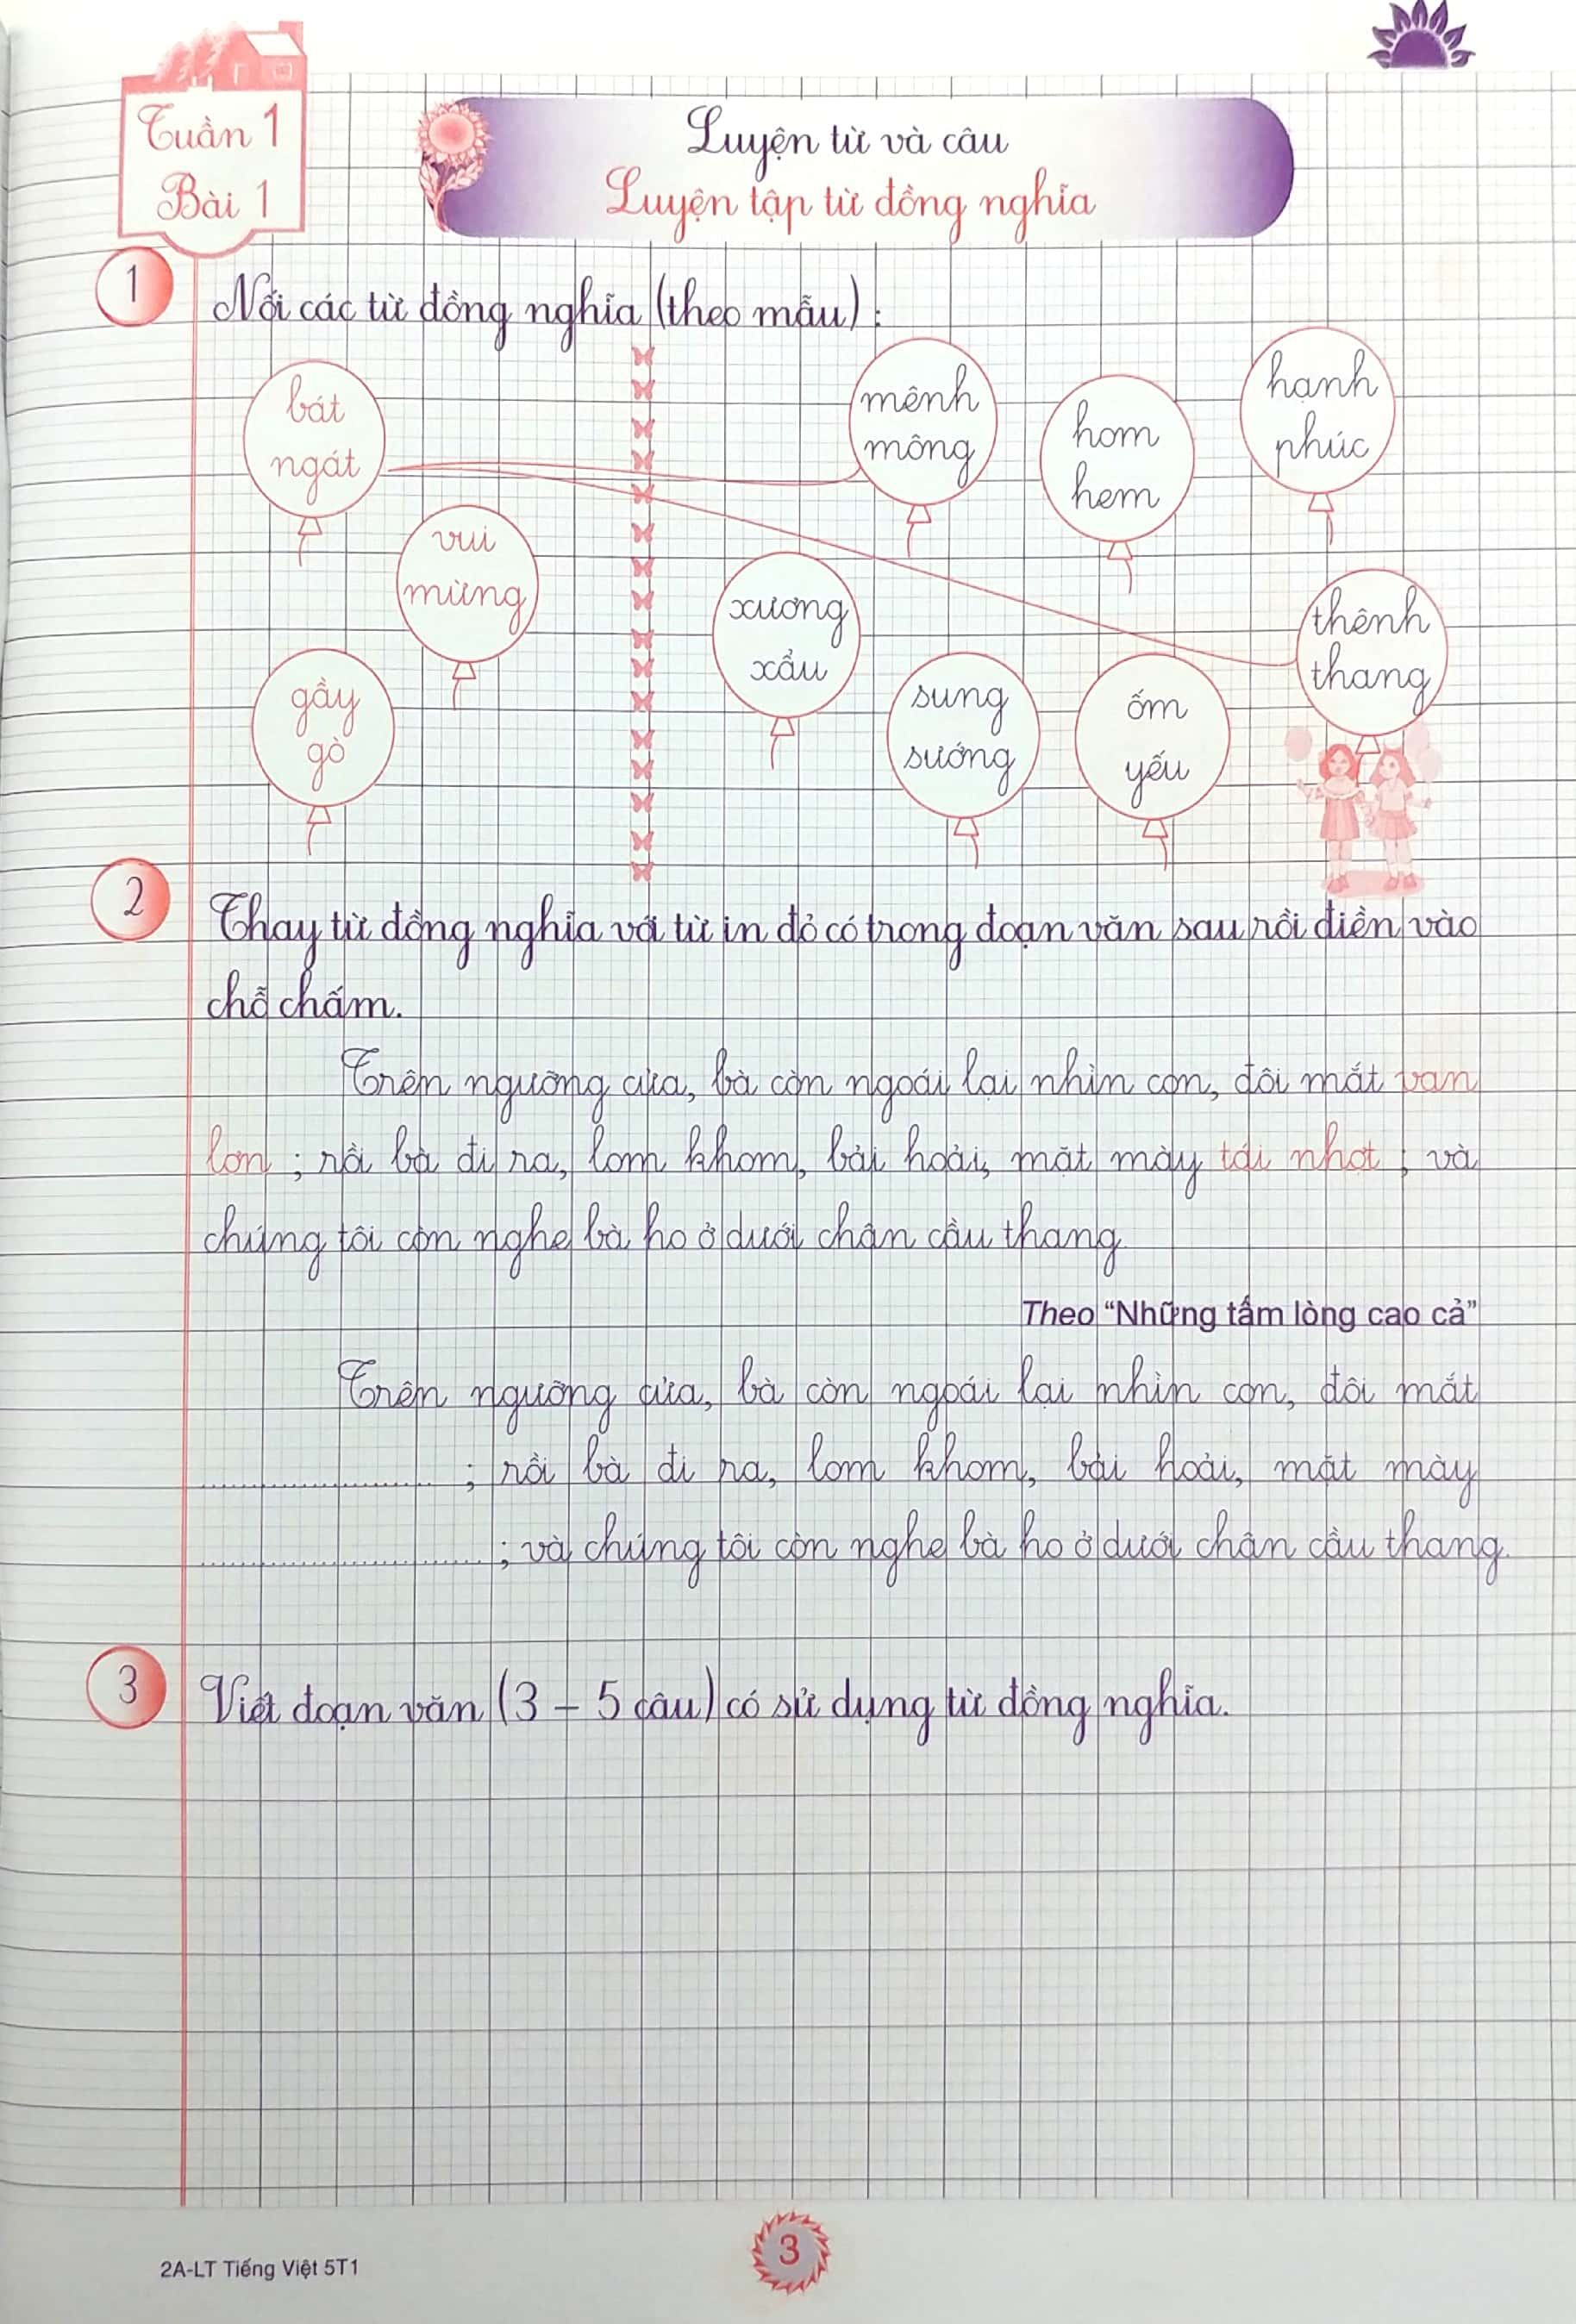 Tuần 1
Bài 1
Luyện từ và câu
Luyện tập từ đồng nghĩa
1
Nối các từ đồng nghĩa (theo mẫu) :
bát
ngát
vui
mừng
gầy
gò
mênh
mông
hom
hem
hạnh
phúc
xương
xẩu
sung
sướng
ốm
yếu
thênh
thang
2
Thay từ đồng nghĩa với từ in đỏ có trong đoạn văn sau rồi điền vào
chỗ chấm.
Trên ngưỡng cửa, bà còn ngoái lại nhìn con, đôi mắt van
lơn ; rồi bà đi ra, lom khom, bải hoải, mặt mày tái nhợt ; và
chúng tôi còn nghe bà ho ở dưới chân cầu thang
Theo “Những tấm lòng cao cả”
Trên ngưỡng cửa, bà còn ngoái lại nhìn con, đôi mắt
.............................. ; rồi bà đi ra, lom khom, bải hoải, mặt mày
.................................... ; và chúng tôi còn nghe bà ho ở dưới chân cầu thang.
3
Viết đoạn văn (3 – 5 câu) có sử dụng từ đồng nghĩa.
2A-LT Tiếng Việt 5T1
3